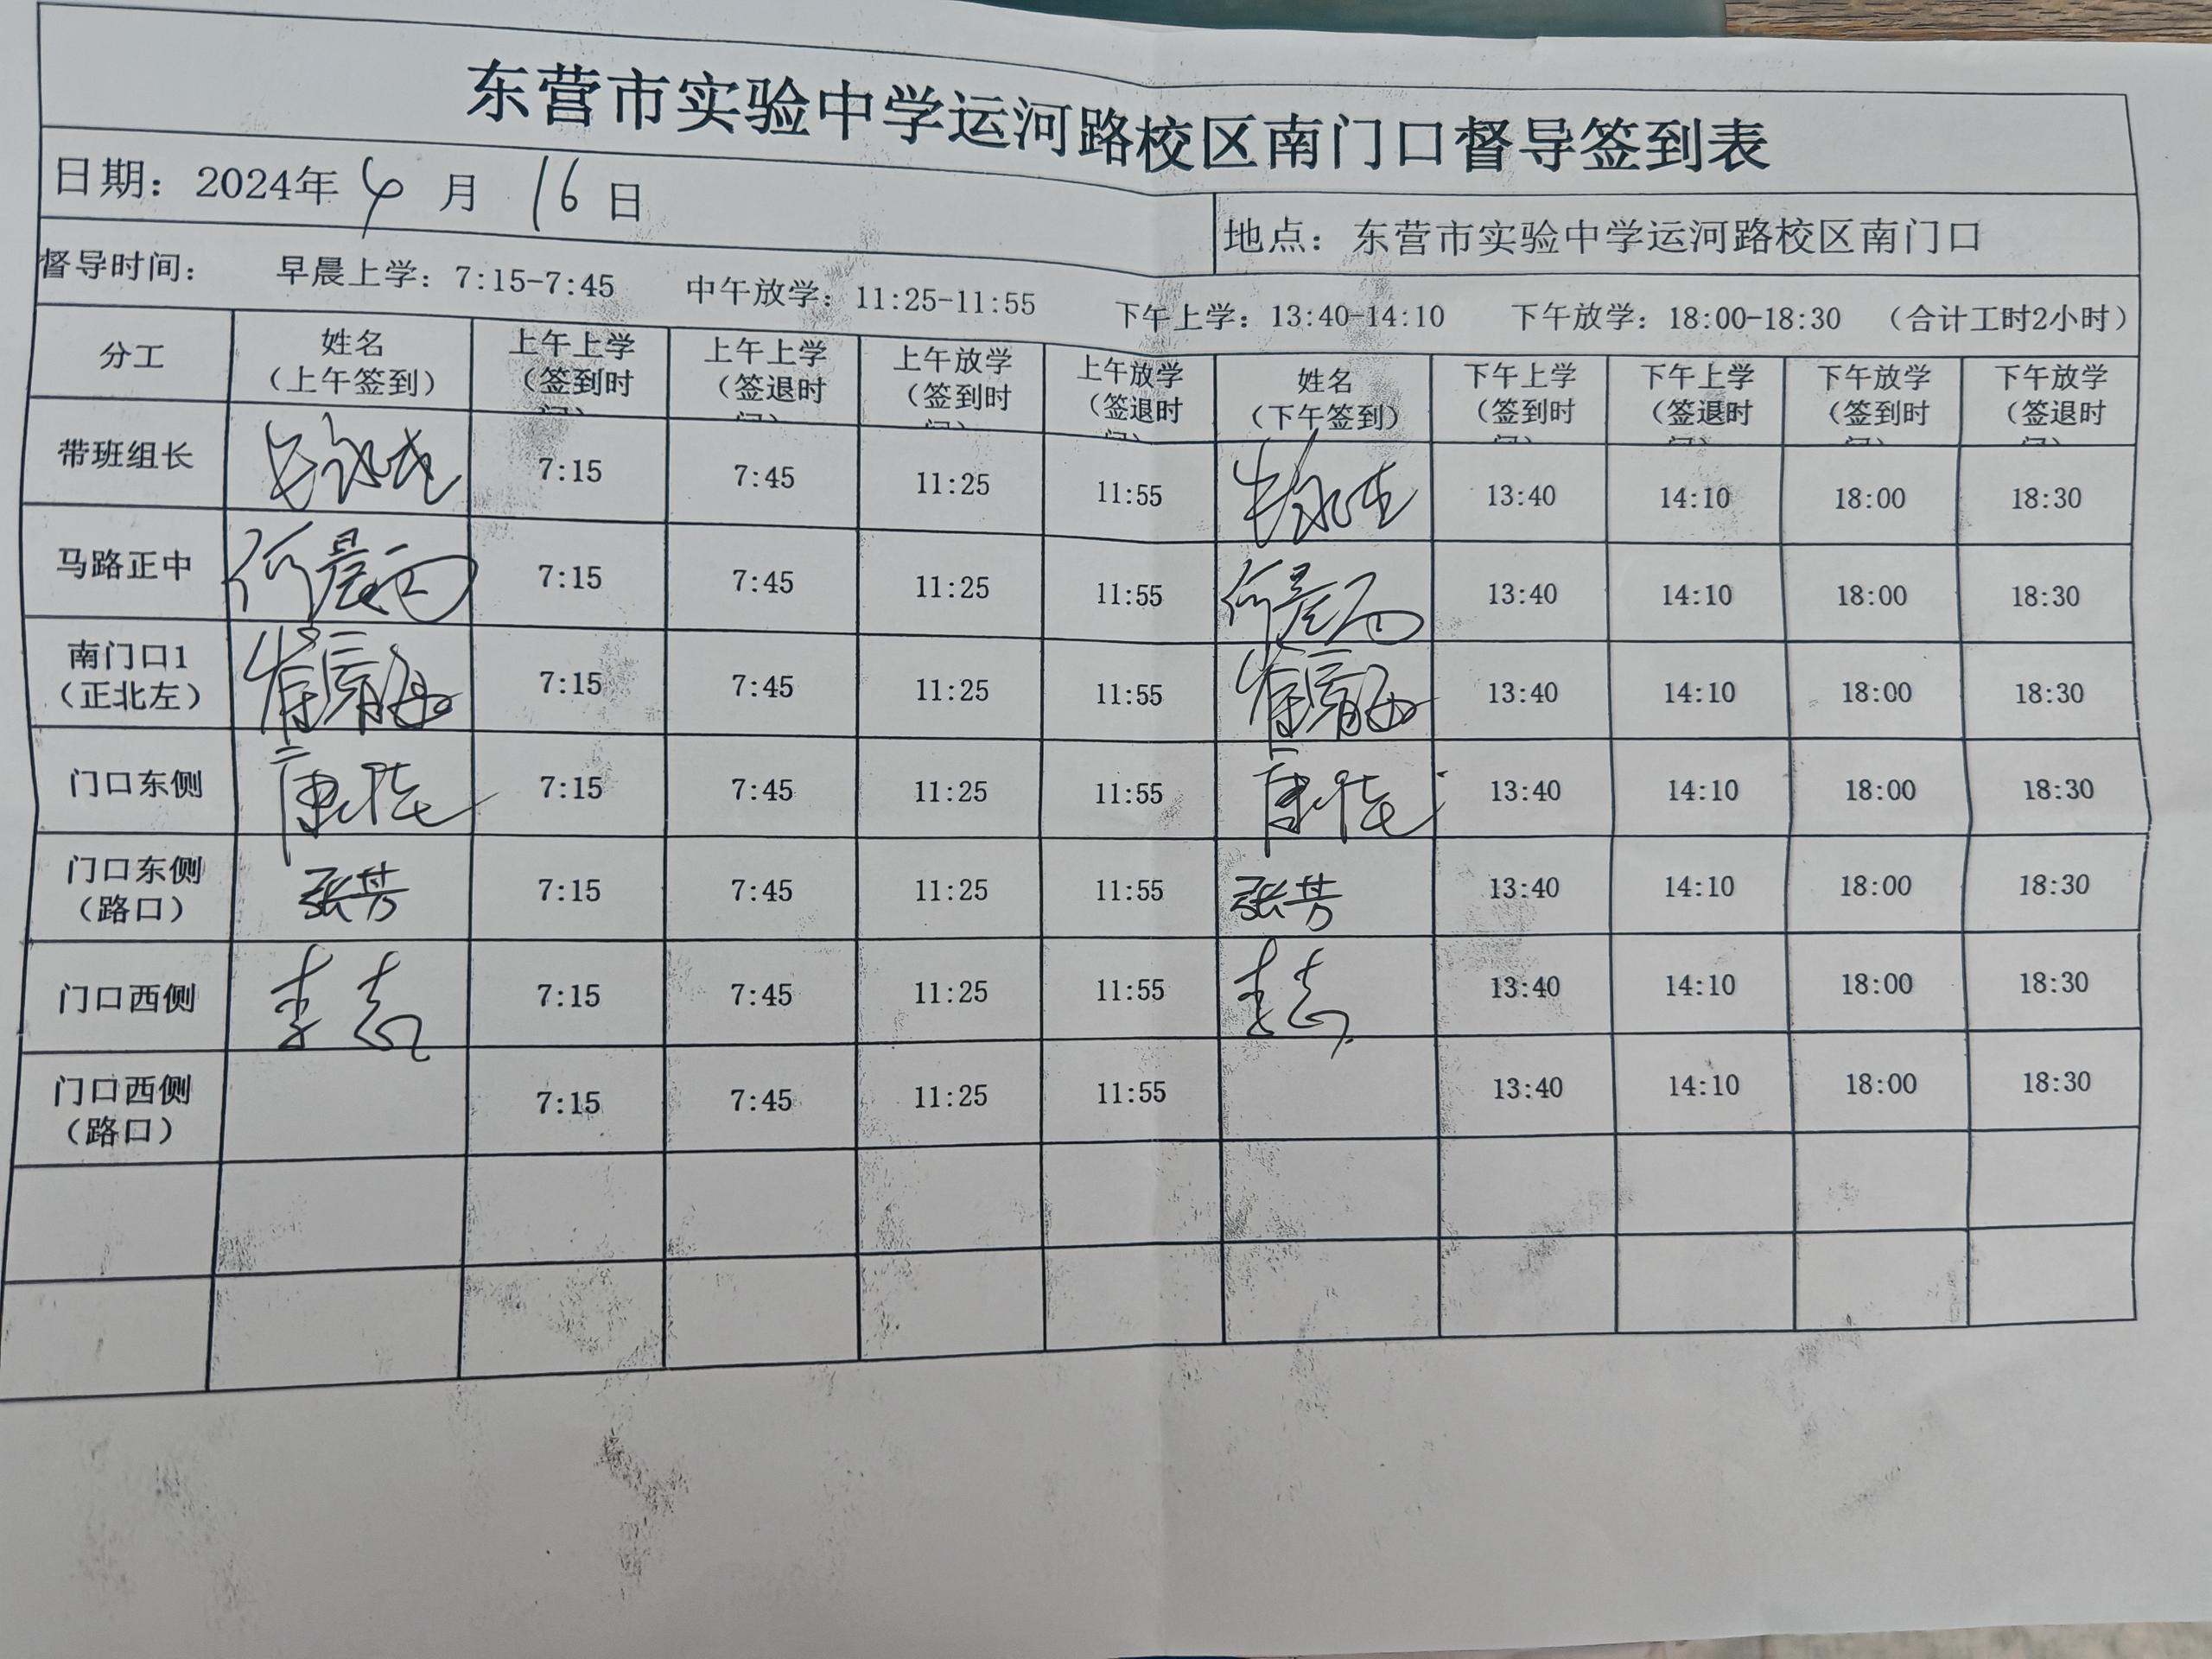 东营市实验中学运河路校区南门口督导签到表
日期：2024年 4 月 16 日
地点：东营市实验中学运河路校区南门口
督导时间： 早晨上学：7:15-7:45 中午放学：11:25-11:55 下午上学：13:40-14:10 下午放学：18:00-18:30 （合计工时2小时）
分工 姓名（上午签到） 上午上学（签到时间） 上午上学（签退时间） 上午放学（签到时间） 上午放学（签退时间） 姓名（下午签到） 下午上学（签到时间） 下午上学（签退时间） 下午放学（签到时间） 下午放学（签退时间）
带班组长 7:15 7:45 11:25 11:55 13:40 14:10 18:00 18:30
马路正中 7:15 7:45 11:25 11:55 13:40 14:10 18:00 18:30
南门口1（正北左） 7:15 7:45 11:25 11:55 13:40 14:10 18:00 18:30
门口东侧 7:15 7:45 11:25 11:55 13:40 14:10 18:00 18:30
门口东侧（路口） 张芳 7:15 7:45 11:25 11:55 张芳 13:40 14:10 18:00 18:30
门口西侧 7:15 7:45 11:25 11:55 13:40 14:10 18:00 18:30
门口西侧（路口） 7:15 7:45 11:25 11:55 13:40 14:10 18:00 18:30